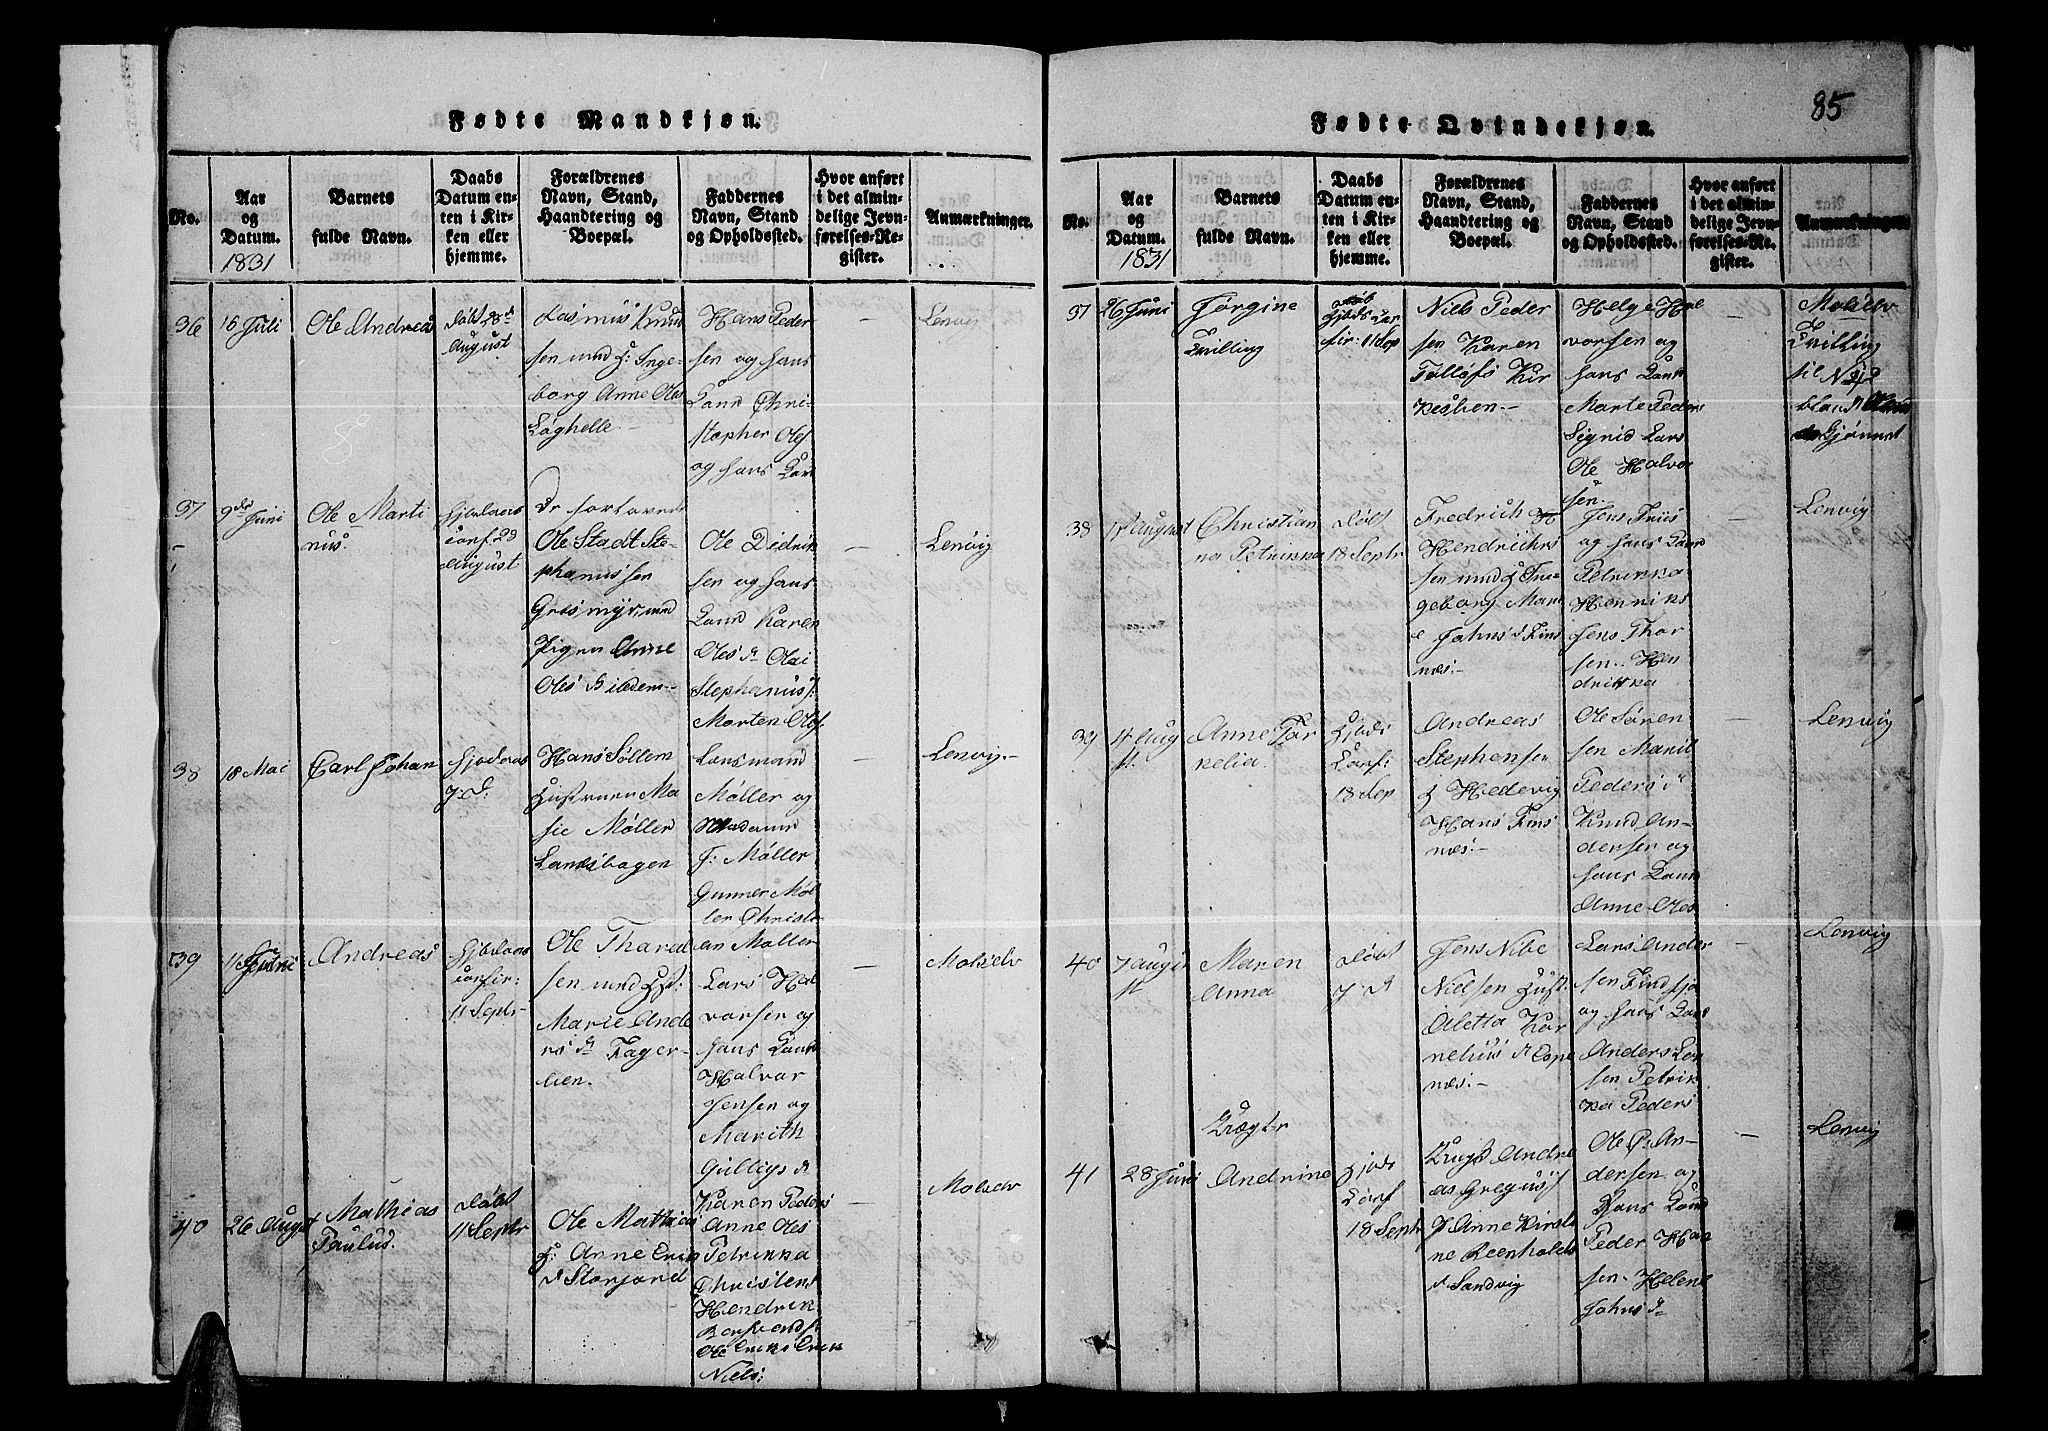 Fødte Mandkjøn.
No.
Aar
og
Datum.
1831
Barnets
fulde Navn.
Daabs
Datum en-
ten i Kir-
ken eller
hjemme.
Forældrenes
Navn, Stand,
Haandtering og
Boepæl.
Faddernes
Navn, Stand
og Opholdssted.
Hvor anført
i det almin-
delige Jevn-
førelses-Re-
gister.
Anmærkninger.
36
16 Juli
Ole Andreas
Døbt 28de
August
Rasmus Knud
sen med H: Inge-
borg Anne Oles
Laghelle.
Hans Peder
sen og hans
Kone Chri-
stopher Ols
og hans Kone
Lenvig
37
9de Juni
Ole Marti
nus.
hjdaab
conf. 28
August
Ole Stadt Ste-
phanussen
Gresmyr, med
Pigen Anne
Oles
Ole Didrik
sen og hans
Kone Karen
Olesdr Olai
Stephanus
Morten Ols
—
Lenvig
38
18 Mai
Carl Johan
hjdaab
7. D.
Hans Sollem
Hustruen Ma
sie Møller
Landsbogen
Lensmand
Møller og
Madamme
J: Møller
Gunner Møl
ler Christi-
an Møller
—
Lenvig.-
39
11 Juni
Andreas
hjdaab
confir.
11 Septr
Ole Thorvel
sen med Hst:
Marie Ande
rsdr Fager-
lien.
Lars Hal
vorsen og
hans Kone
Halvor
Jensen og
Marith
Gulligsdr
Karen Peders
—
Malselv
40
26 August
Mathias
Paulus.
Døbt
11 Septr
Ole Mathias
H: Anne Erik
dr Storjord
Anne Oles
Petrikka
Christens
Hendrik
Ole Eriks Erik
Niels:
—
Malselv
85
Fødte Qvindekjøn.
No.
Aar
og
Datum.
1831
Barnets
fulde Navn.
Daabs
Datum en-
ten i Kir-
ken eller
hjemme.
Forældrenes
Navn, Stand,
Haandtering og
Boepæl.
Faddernes
Navn, Stand
og Opholdssted.
Hvor anført
i det almin-
delige Jevn-
førelses-Re-
gister.
Anmærkninger
37
26 Juni
Jørgine
Tvilling
11 Sep
Niels Peder
sen Karen
Tollefs Kir
kesben.-
Helge Hal
vorsen og
hans Kone
Marte Peders
Sigrid Lars
Ole Halvor
sen.
—
Malselv
Tvilling
til No 42
blandt
38
1st August
Christian
na Petrikka
Døbt
18 Septr
Fredrich
Hendrichs
sen med H In-
geborg Mari
e Johnsdr Fins
næs.-
Jens Friis
og hans Kone
Petrikka
Henriks
Jens Thor
sen. Hen
drikka
—
Lenvig
39
4 Aug
st.
Anne Tor
kelia.
Hjdb
Conf:
18 Sep
Andreas
Stephensen
H Hedevig
Hans Fins
næs.-
Ole Søren
sen Marit
Pedersdr
Knud An-
dersen og
hans Kone
Anne Oles
—
Lenvig
40
7 Augu
st
Maren
Anna
Døbt
7 D
Jens Nibe
Nielsen Hust:
Aletta Kor
neliusdr Cope
næs.-
Lars Ander
sen Findfjo
og hans Kone
Anders Lar
sen Petrik
ka Peders
—
Lenvig
41
28 Juni
Uægte
Andrine
Hjdb
Conf
18 Septr
Ungk Andre
as Gregus
P Anne Kirsti
ne Reenholds
dr Sandvig
Ole P. An-
dersen og
hans Kone
Peder Han
sen. Helene
Johnsdr
—
Lenvig